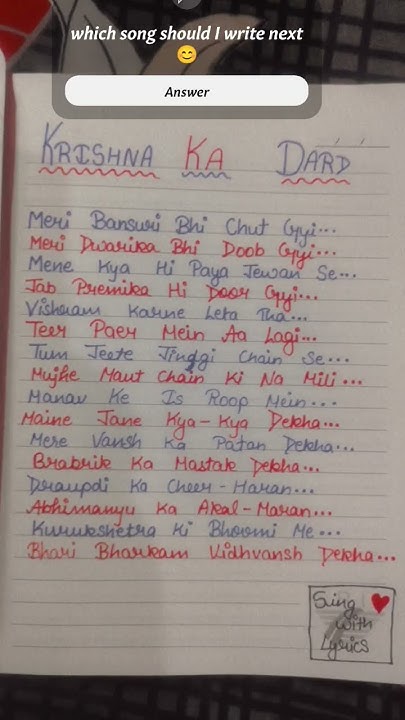 which song should I write next
😊
Answer
KRISHNA KA DARD
Meri Bansuri Bhi Chut Gyi...
Meri Dwarika Bhi Doob Gyi...
Mene Kya Hi Paya Jewan Se...
Jab Premika Hi Door Gyi...
Vishram Karne Leta Tha...
Teer Paer Mein Aa Lagi...
Tum Jeete Jinggi Chain Se...
Mujhe Maut Chain Ki Na Mili...
Manav Ke Is Roop Mein...
Maine Jane Kya-Kya Dekha...
Mere Vansh Ka Patan Dekha...
Brabrik Ka Mastak Dekha...
Draupdi Ka Cheer-Haran...
Abhimanyu Ka Akal-Maran...
Kurukshetra Ki Bhoomi Me...
Bhari Bharkam Vidhvansh Dekha...
Sing
with
Lyrics